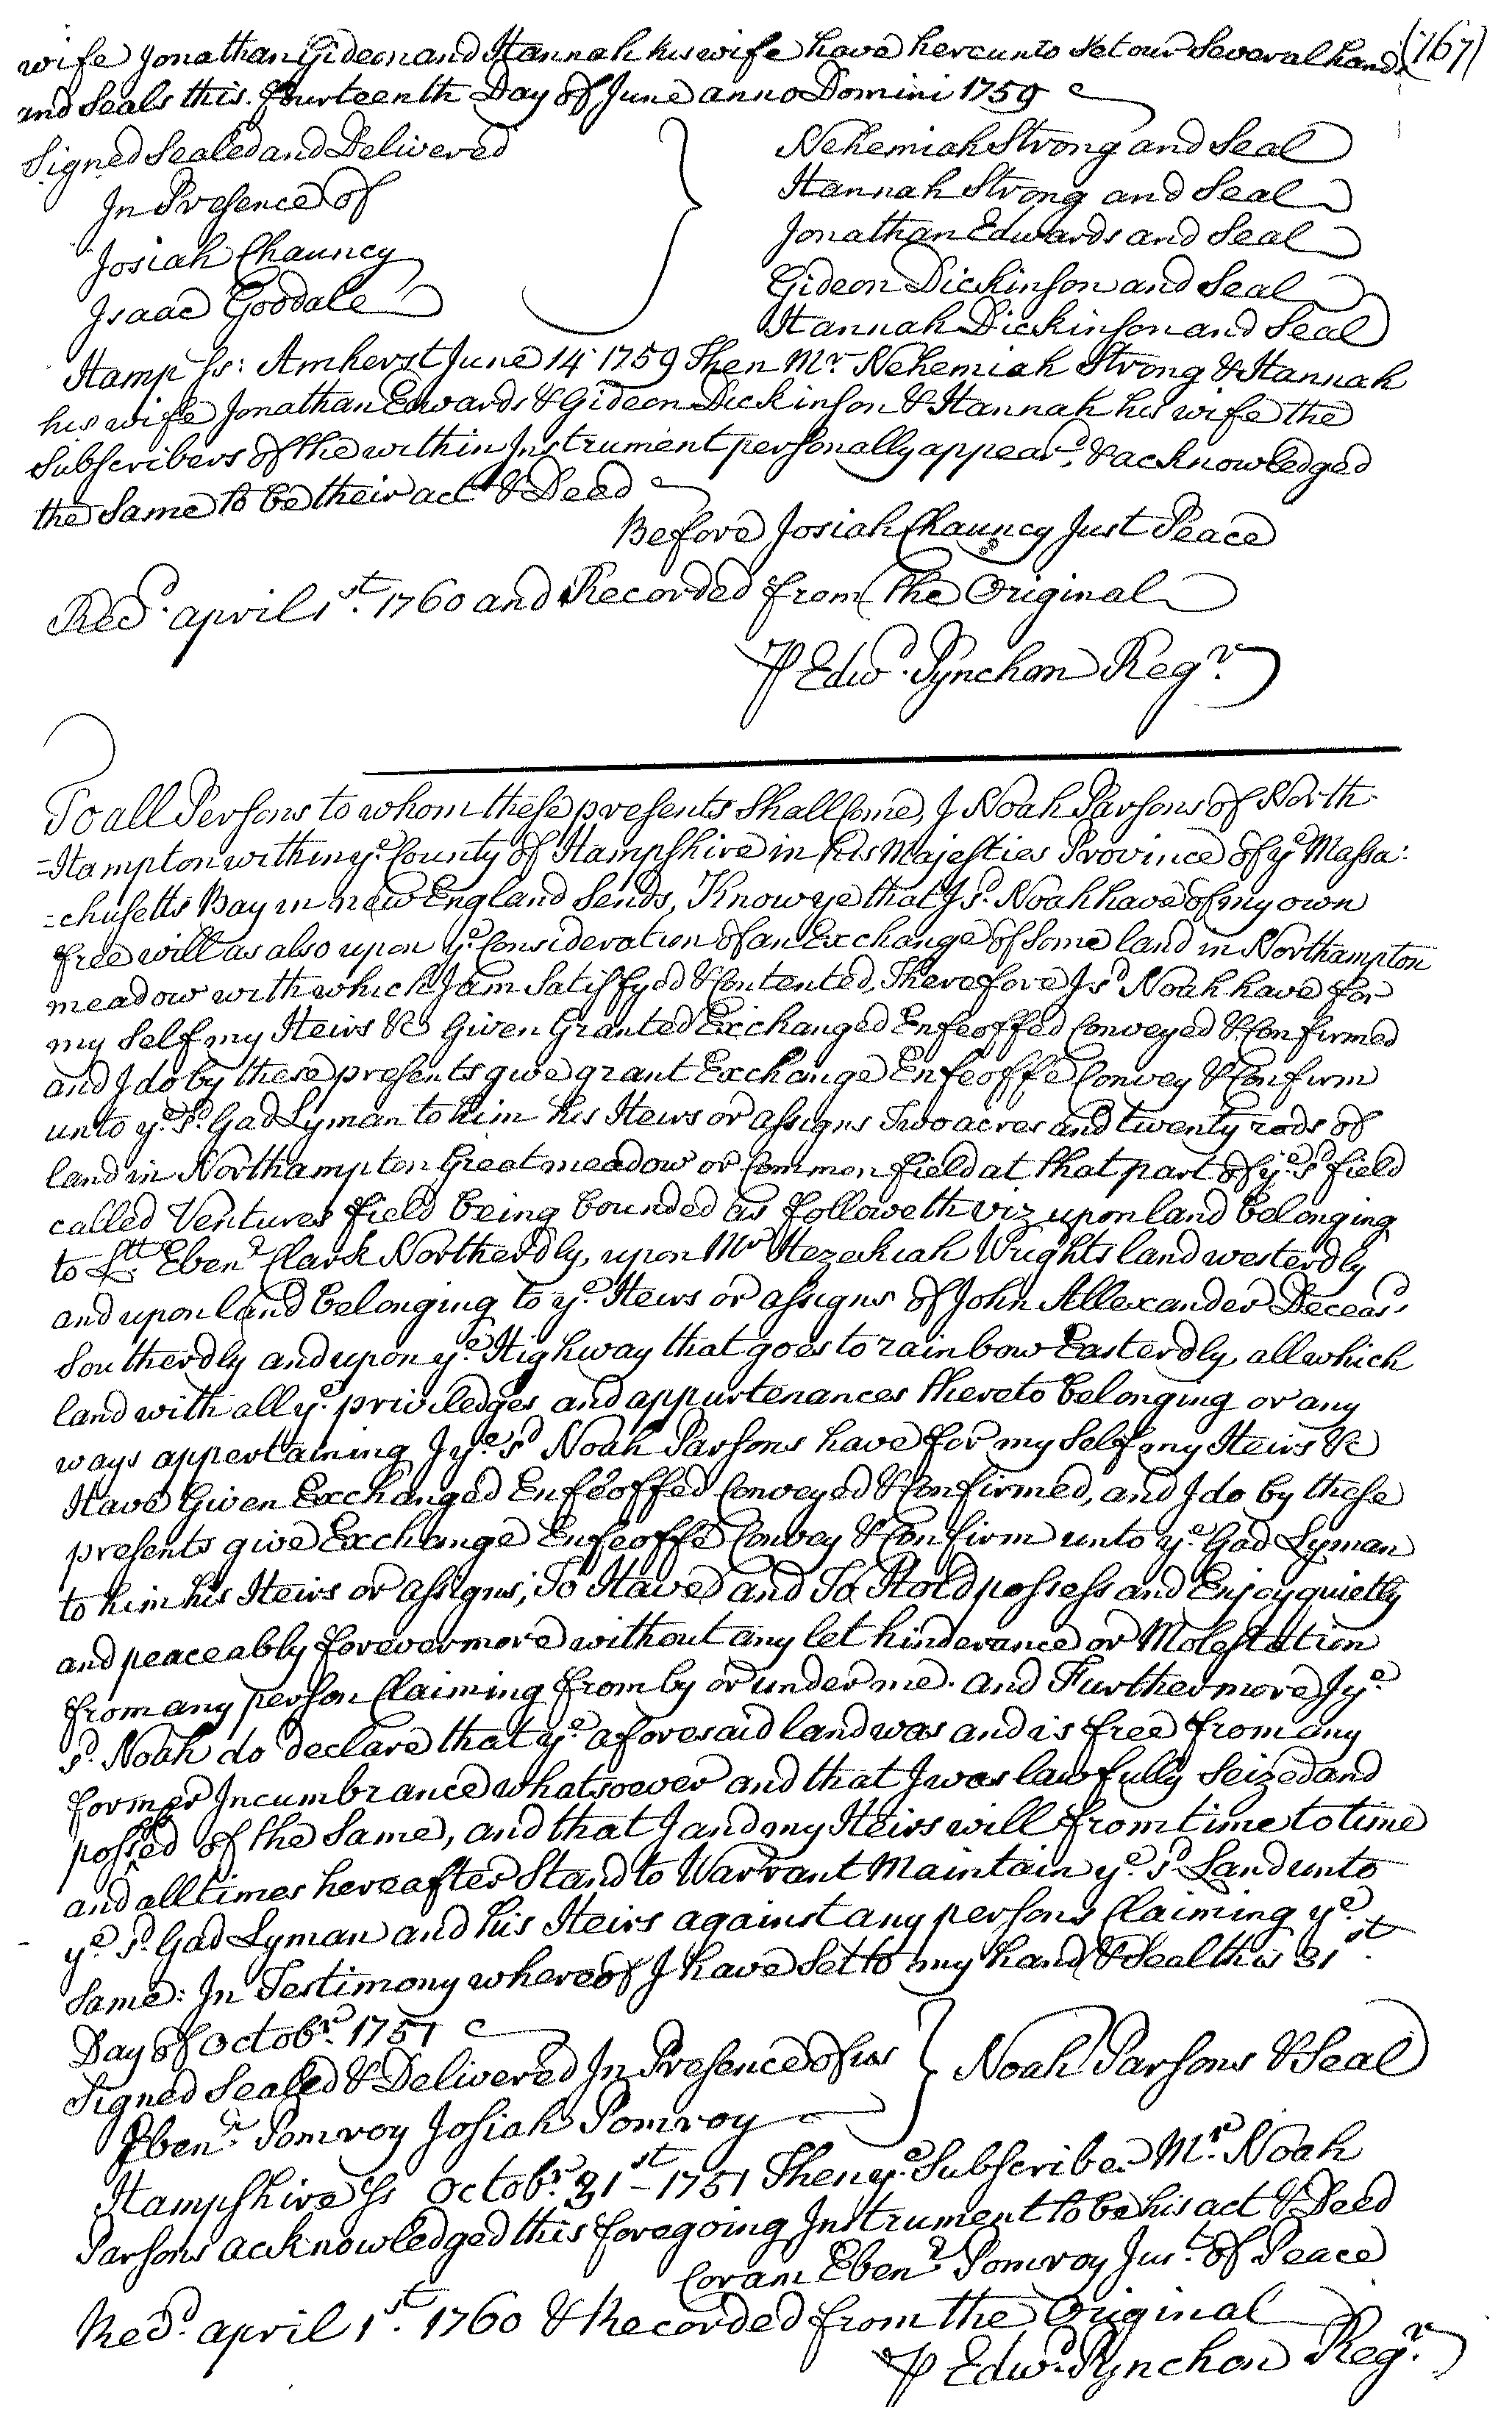 wife Jonathan Gideon and Hannah his wife have hereunto Set our Several hands (767)
and Seals this fourteenth Day of June anno Domini 1759
Signed Sealed and Delivered
In Presence of
Josiah Chauncy
Isaac Goodale
Nehemiah Strong and Seal
Hannah Strong and Seal
Jonathan Edwards and Seal
Gideon Dickinson and Seal
Hannah Dickinson and Seal
Hamp ss: Amherst June 14 1759 Then Mr. Nehemiah Strong & Hannah
his wife Jonathan Edwards & Gideon Dickinson & Hannah his wife the
Subscribers of the within Instrument personally appeard. & acknowledged
the Same to be their act & Deed
Before Josiah Chauncy Just Peace
Recd. april 1st. 1760 and Recorded from the Original
P Edwd. Pynchon Regr.
To all Persons to whom these presents Shall Come, I Noah Parsons of North
=Hampton within ye. County of Hampshire in his Majesties Province of ye Massa:
=chusetts Bay in new England Sends, Know ye that I sd. Noah have of my own
free will as also upon ye. Consideration of an Exchange of Some land in Northampton
meadow with which I am Satisfyed & Contented, Therefore I sd Noah have for
my Self my Heirs &c Given Granted Exchanged Enfeoffed Conveyed & Confirmed
and I do by these presents give grant Exchange Enfeoffe Convey & Confirm
unto ye. sd. Gad Lyman to him his Heirs or assigns Two acres and twenty rods of
land in Northampton Great meadow or Common field at that part of ye. sd field
called Ventures field being bounded as followeth viz upon land belonging
to Ltt. Ebenr Clark Northerdly, upon Mr Hezekiah Wrights land westerdly
and upon land belonging to ye. Heirs or assigns of John Allexander Deceasd
Southerdly and upon ye. Highway that goes to rainbow Easterdly, all which
land with all ye. priviledges and appurtenances thereto belonging or any
ways appertaining I ye. sd Noah Parsons have for my Self my Heirs &c
Have Given Exchanged Enfeoffed Conveyed & Confirmed, and I do by these
presents give Exchange Enfeoffe Convey & Confirm unto ye. Gad Lyman
to him his Heirs or assigns, To Have and To Hold possess and Enjoy quietly
and peaceably forevermore without any let hinderance or Molestation
from any person Claiming from by or under me. and Furthermore I ye.
sd. Noah do declare that ye. aforesaid land was and is free from any
former Incumbrance whatsoever and that I was lawfully Seized and
possed of the Same, and that I and my Heirs will from time to time
and all times hereafter Stand to Warrant Maintain ye. sd Land unto
ye. sd. Gad Lyman and his Heirs against any persons Claiming ye.
Same: In Testimony whereof I have Set to my hand & Seal this 31st.
Day of Octobr. 1751
Signed Sealed & Delivered In Presence of us
Noah Parsons & Seal
Ebenr. Pomroy Josiah Pomroy
Hampshire ss Octobr. 31st - 1751 Then ye. Subscriber Mr. Noah
Parsons acknowledged this foregoing Instrument to be his act & Deed
Coram Ebenr Pomroy Just. of Peace
Recd. april 1st. 1760 & Recorded from the Original
P Edwd. Pynchon Regr.